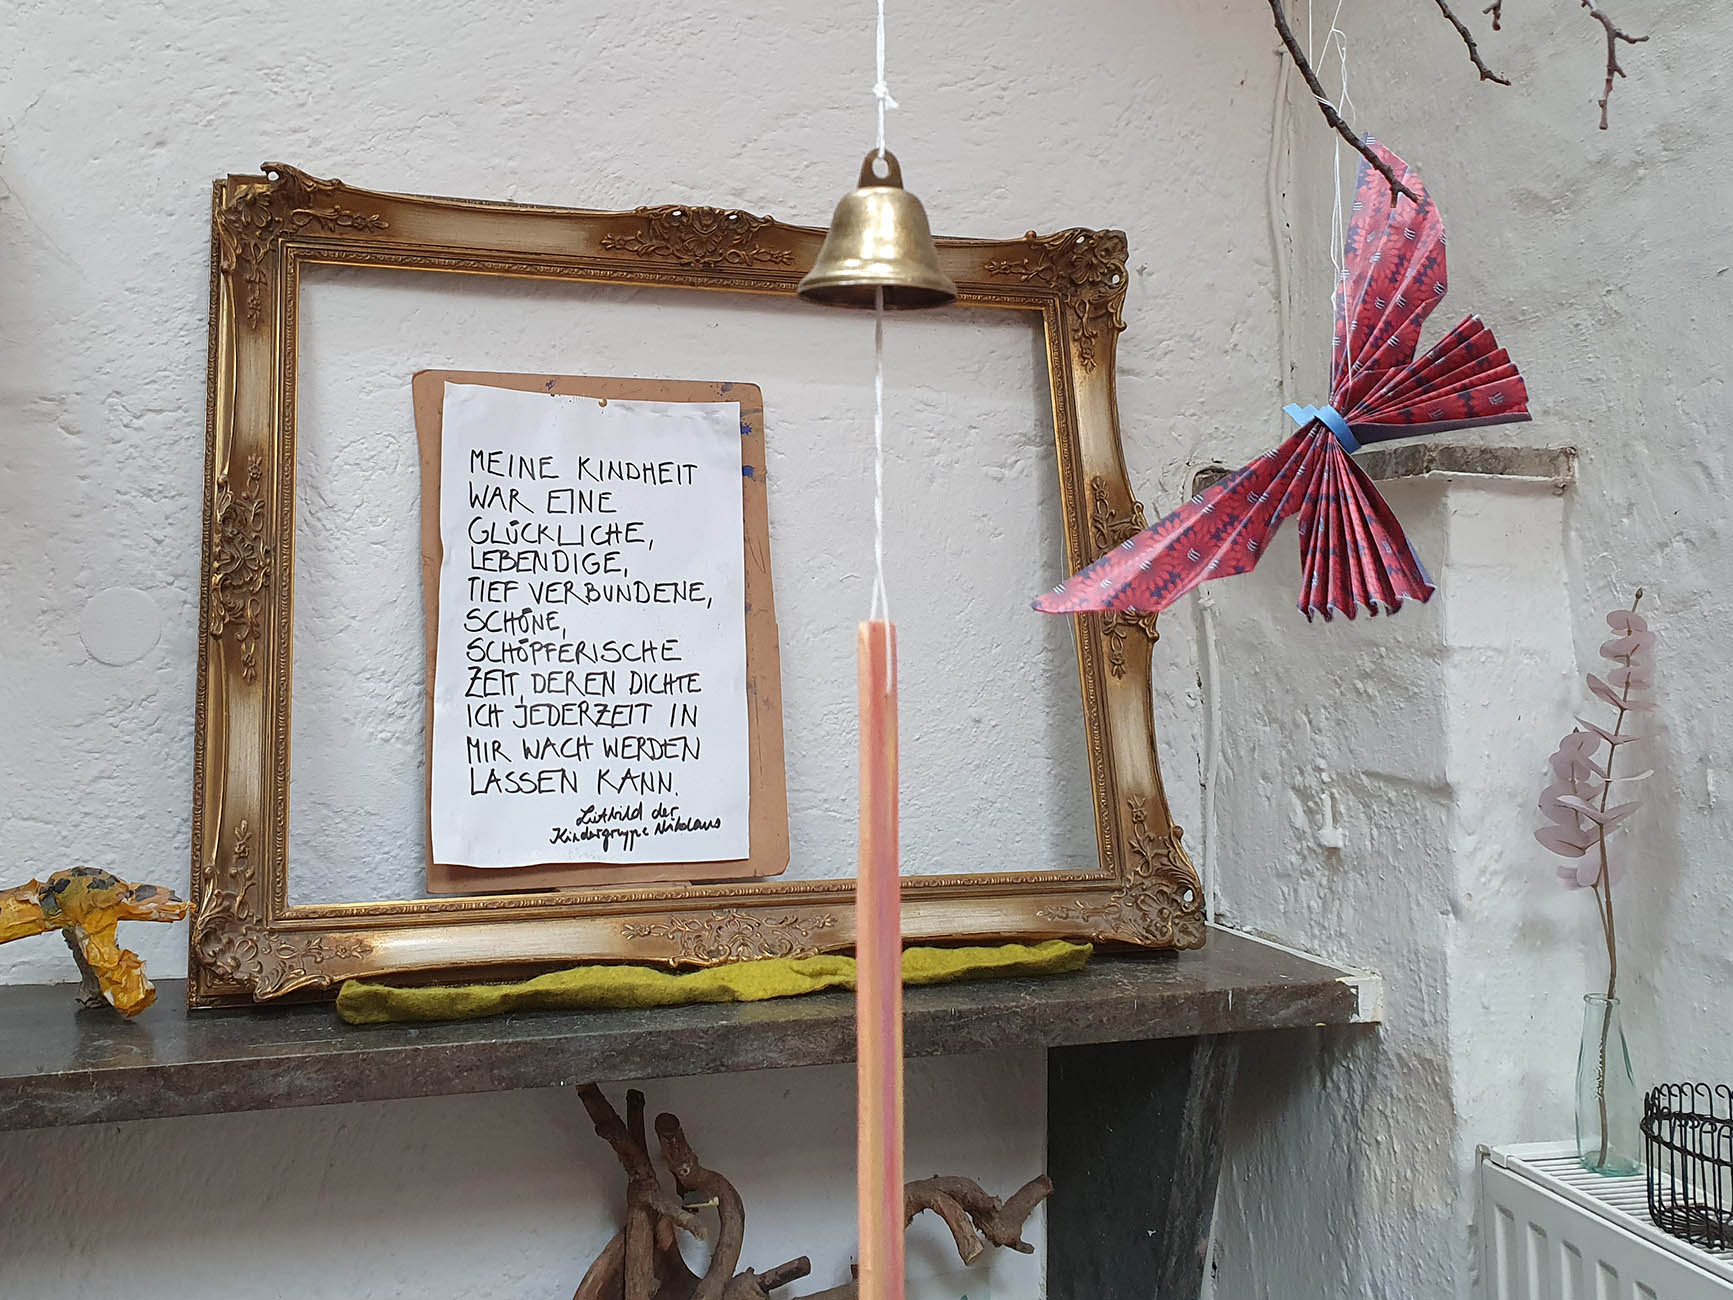 MEINE KINDHEIT
WAR EINE
GLÜCKLICHE,
LEBENDIGE,
TIEF VERBUNDENE,
SCHÖNE,
SCHÖPFERISCHE
ZEIT, DEREN DICHTE
ICH JEDERZEIT IN
MIR WACH WERDEN
LASSEN KANN.
Leitbild der
Kindergruppe Nikolaus